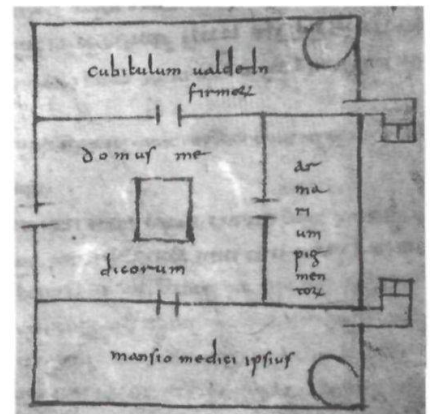 cubiculum ualde In
firmoꝝ
domus me
dicorum
ar
ma
ri
um
pig
men
toꝝ
mansio medici ipsius